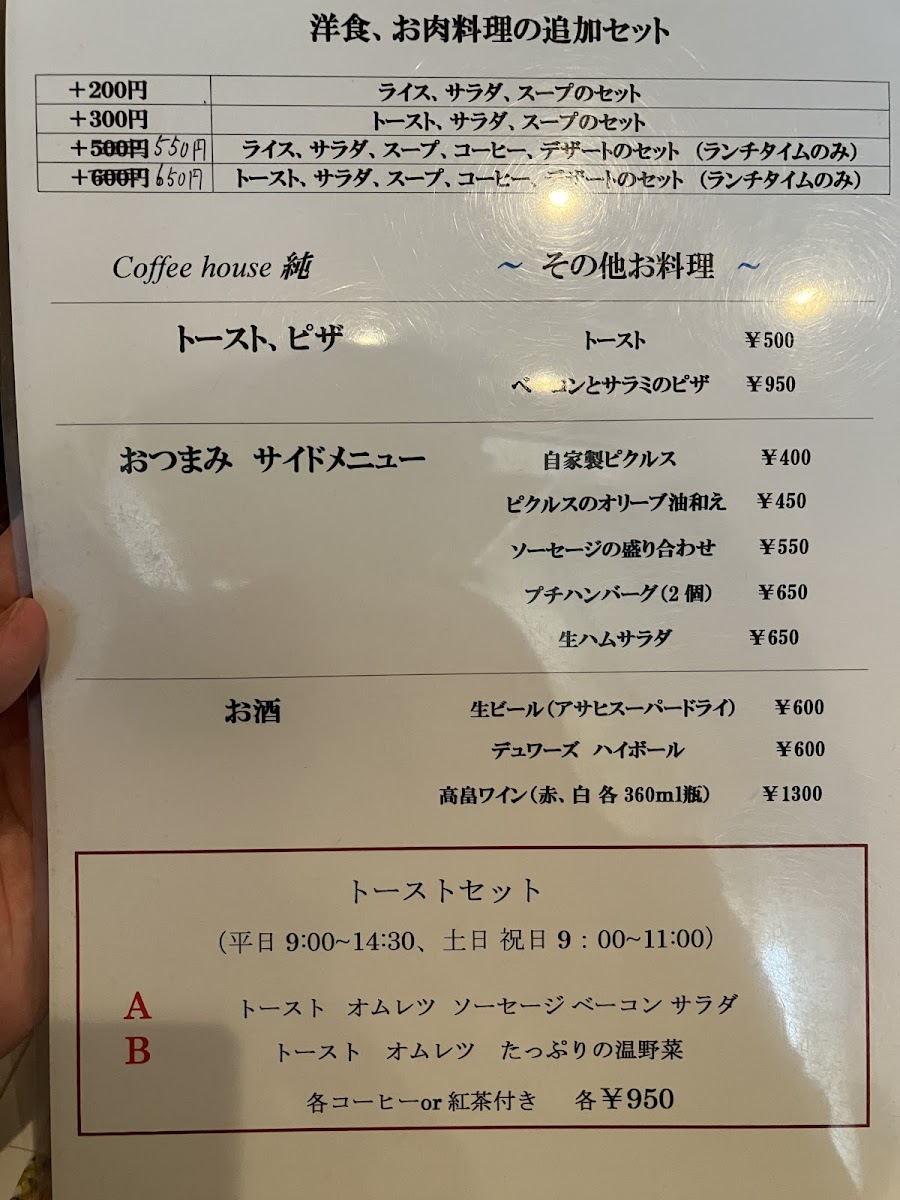 洋食、お肉料理の追加セット
+200円 ライス、サラダ、スープのセット
+300円 トースト、サラダ、スープのセット
+500円 550円 ライス、サラダ、スープ、コーヒー、デザートのセット (ランチタイムのみ)
+600円 650円 トースト、サラダ、スープ、コーヒー、デザートのセット (ランチタイムのみ)
Coffee house 純 ~ その他お料理 ~
トースト、ピザ トースト ¥500
ベーコンとサラミのピザ ¥950
おつまみ サイドメニュー 自家製ピクルス ¥400
ピクルスのオリーブ油和え ¥450
ソーセージの盛り合わせ ¥550
プチハンバーグ(2個) ¥650
生ハムサラダ ¥650
お酒 生ビール(アサヒスーパードライ) ¥600
デュワーズ ハイボール ¥600
高畠ワイン(赤、白 各 360ml瓶) ¥1300
トーストセット
(平日 9:00~14:30、土日 祝日 9：00~11:00)
A トースト オムレツ ソーセージ ベーコン サラダ
B トースト オムレツ たっぷりの温野菜
各コーヒーor 紅茶付き 各¥950